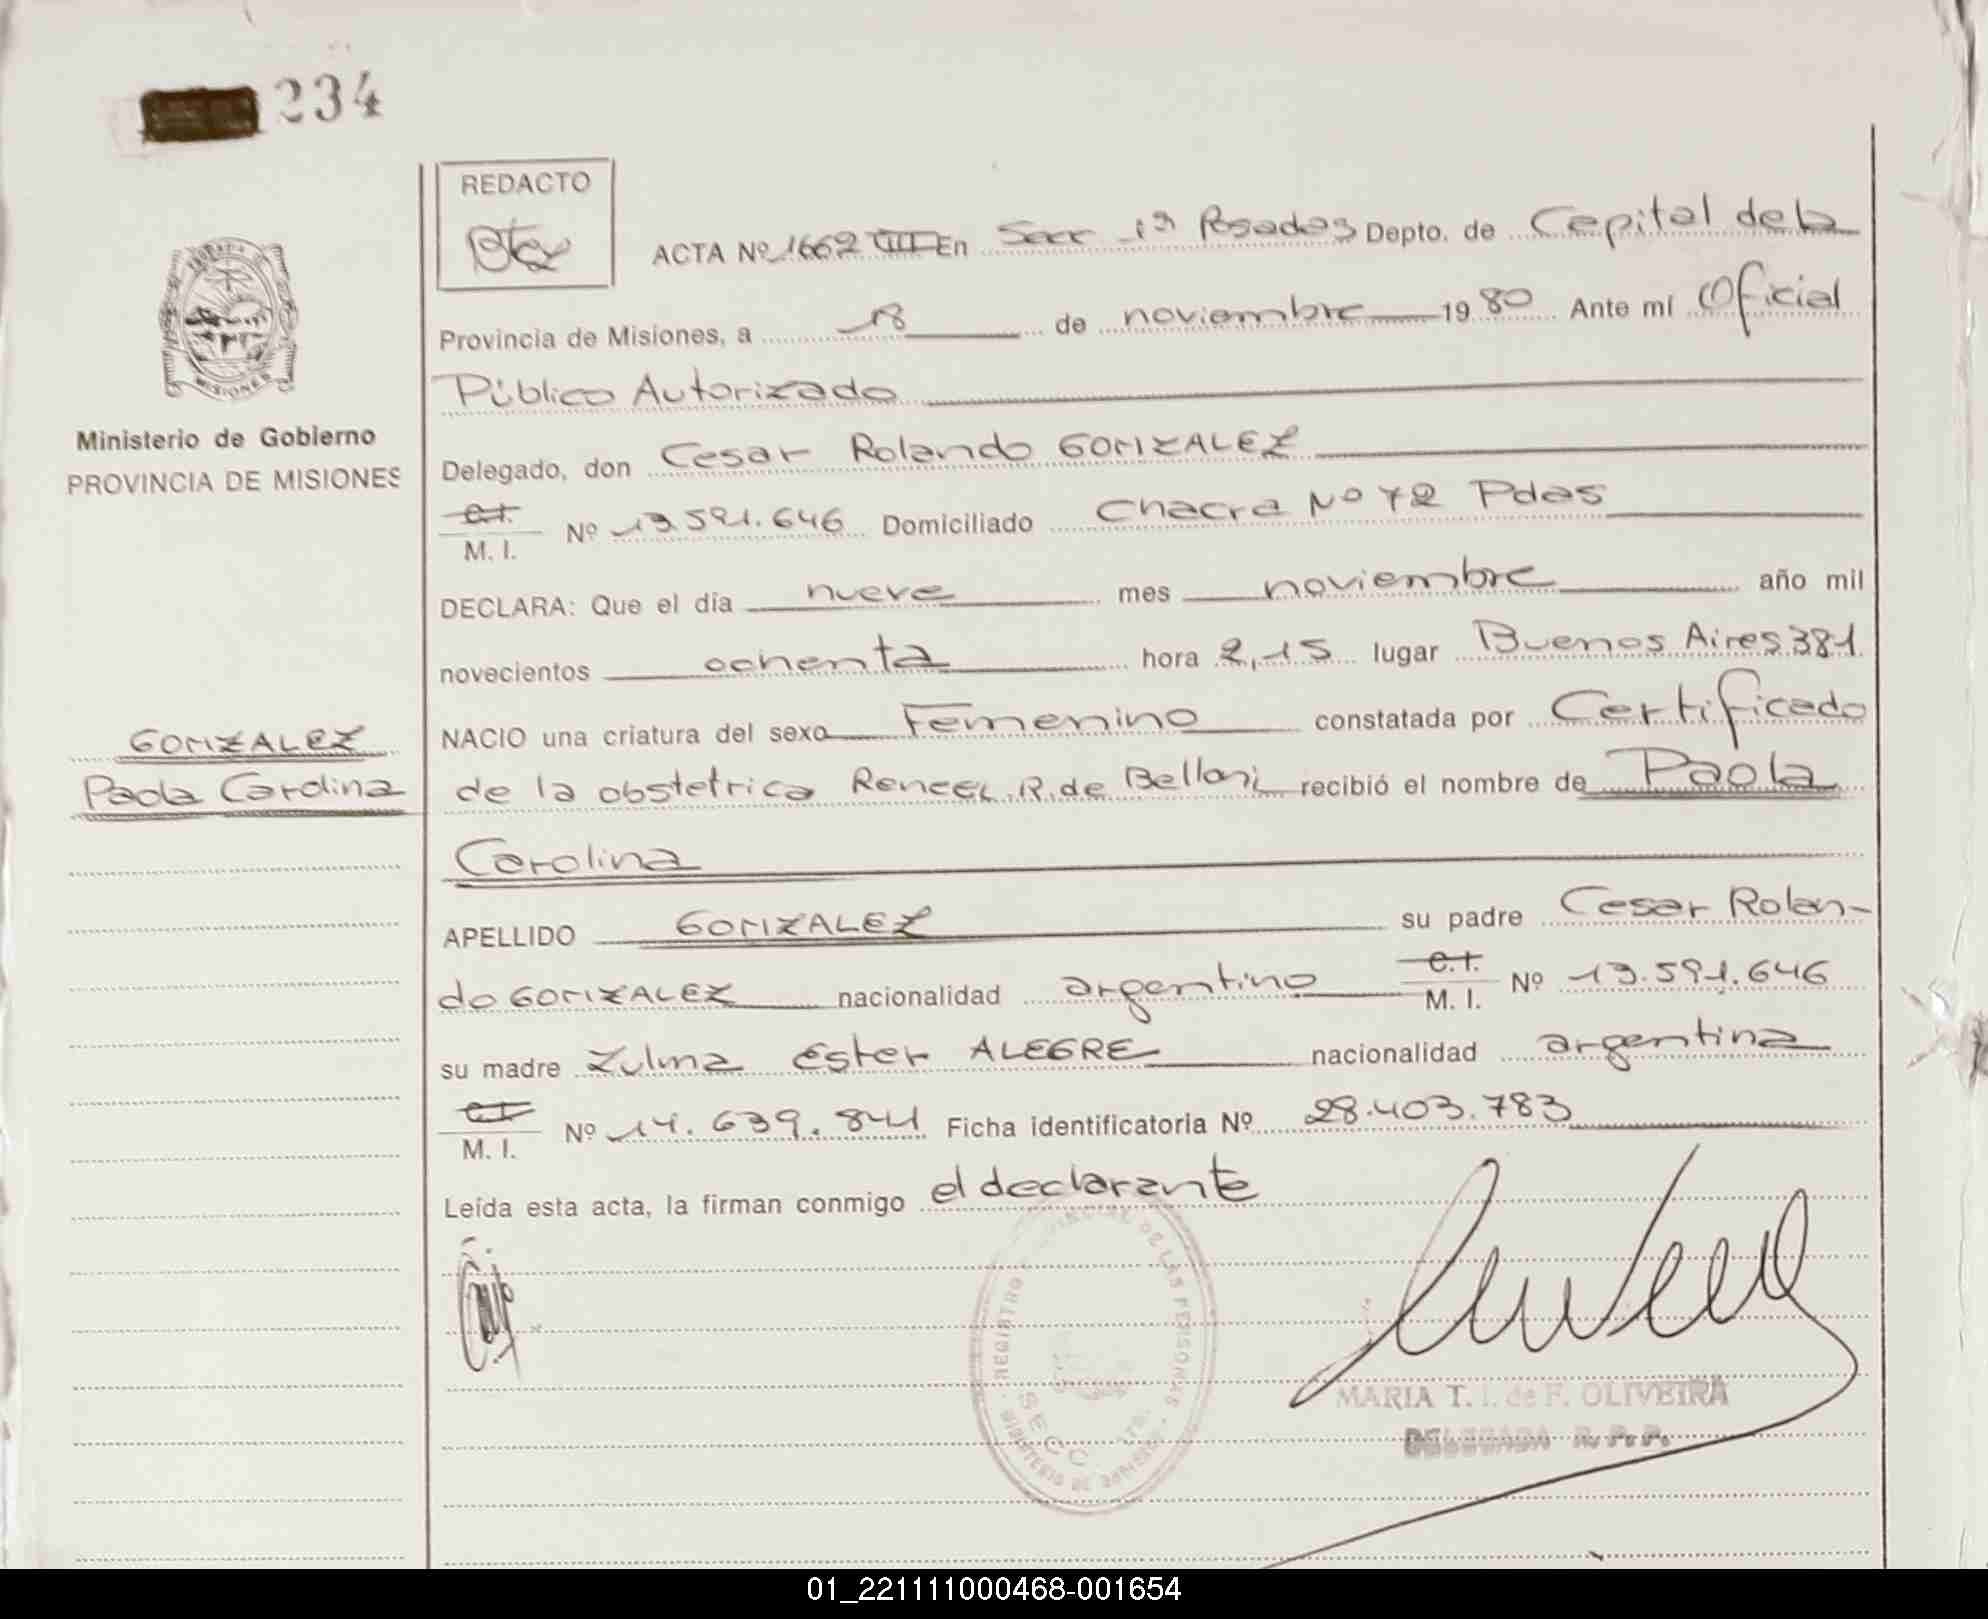 234
REDACTO
ACTA Nº 1662 III En Secc 1ª Posadas Depto. de Capital de la
Provincia de Misiones, a 18 de noviembre 1980 Ante mí Oficial
Público Autorizado
Ministerio de Gobierno
PROVINCIA DE MISIONES
Delegado, don Cesar Rolando GONZALEZ
C.I.
M. I. Nº 13.591.646 Domiciliado Chacra Nº 72 Pdas
DECLARA: Que el día nueve mes noviembre año mil
novecientos ochenta hora 2,15 lugar Buenos Aires 381
NACIO una criatura del sexo Femenino constatada por Certificado
GONZALEZ
Paola Carolina
de la obstetrica R. de Belloni recibió el nombre de Paola
Carolina
APELLIDO GONZALEZ su padre Cesar Rolan-
do GONZALEZ nacionalidad argentino C.I. M. I. Nº 13.591.646
su madre Zulma Ester ALEGRE nacionalidad argentina
C.I.
M. I. Nº 14.639.841 Ficha identificatoria Nº 28.403.783
Leída esta acta, la firman conmigo el declarante
REGISTRO PROVINCIAL DE LAS PERSONAS
SECC 1ra.
MINISTERIO DE GOBIERNO
MARIA T. I. de F. OLIVEIRA
DELEGADA R. P. P.
01_221111000468-001654